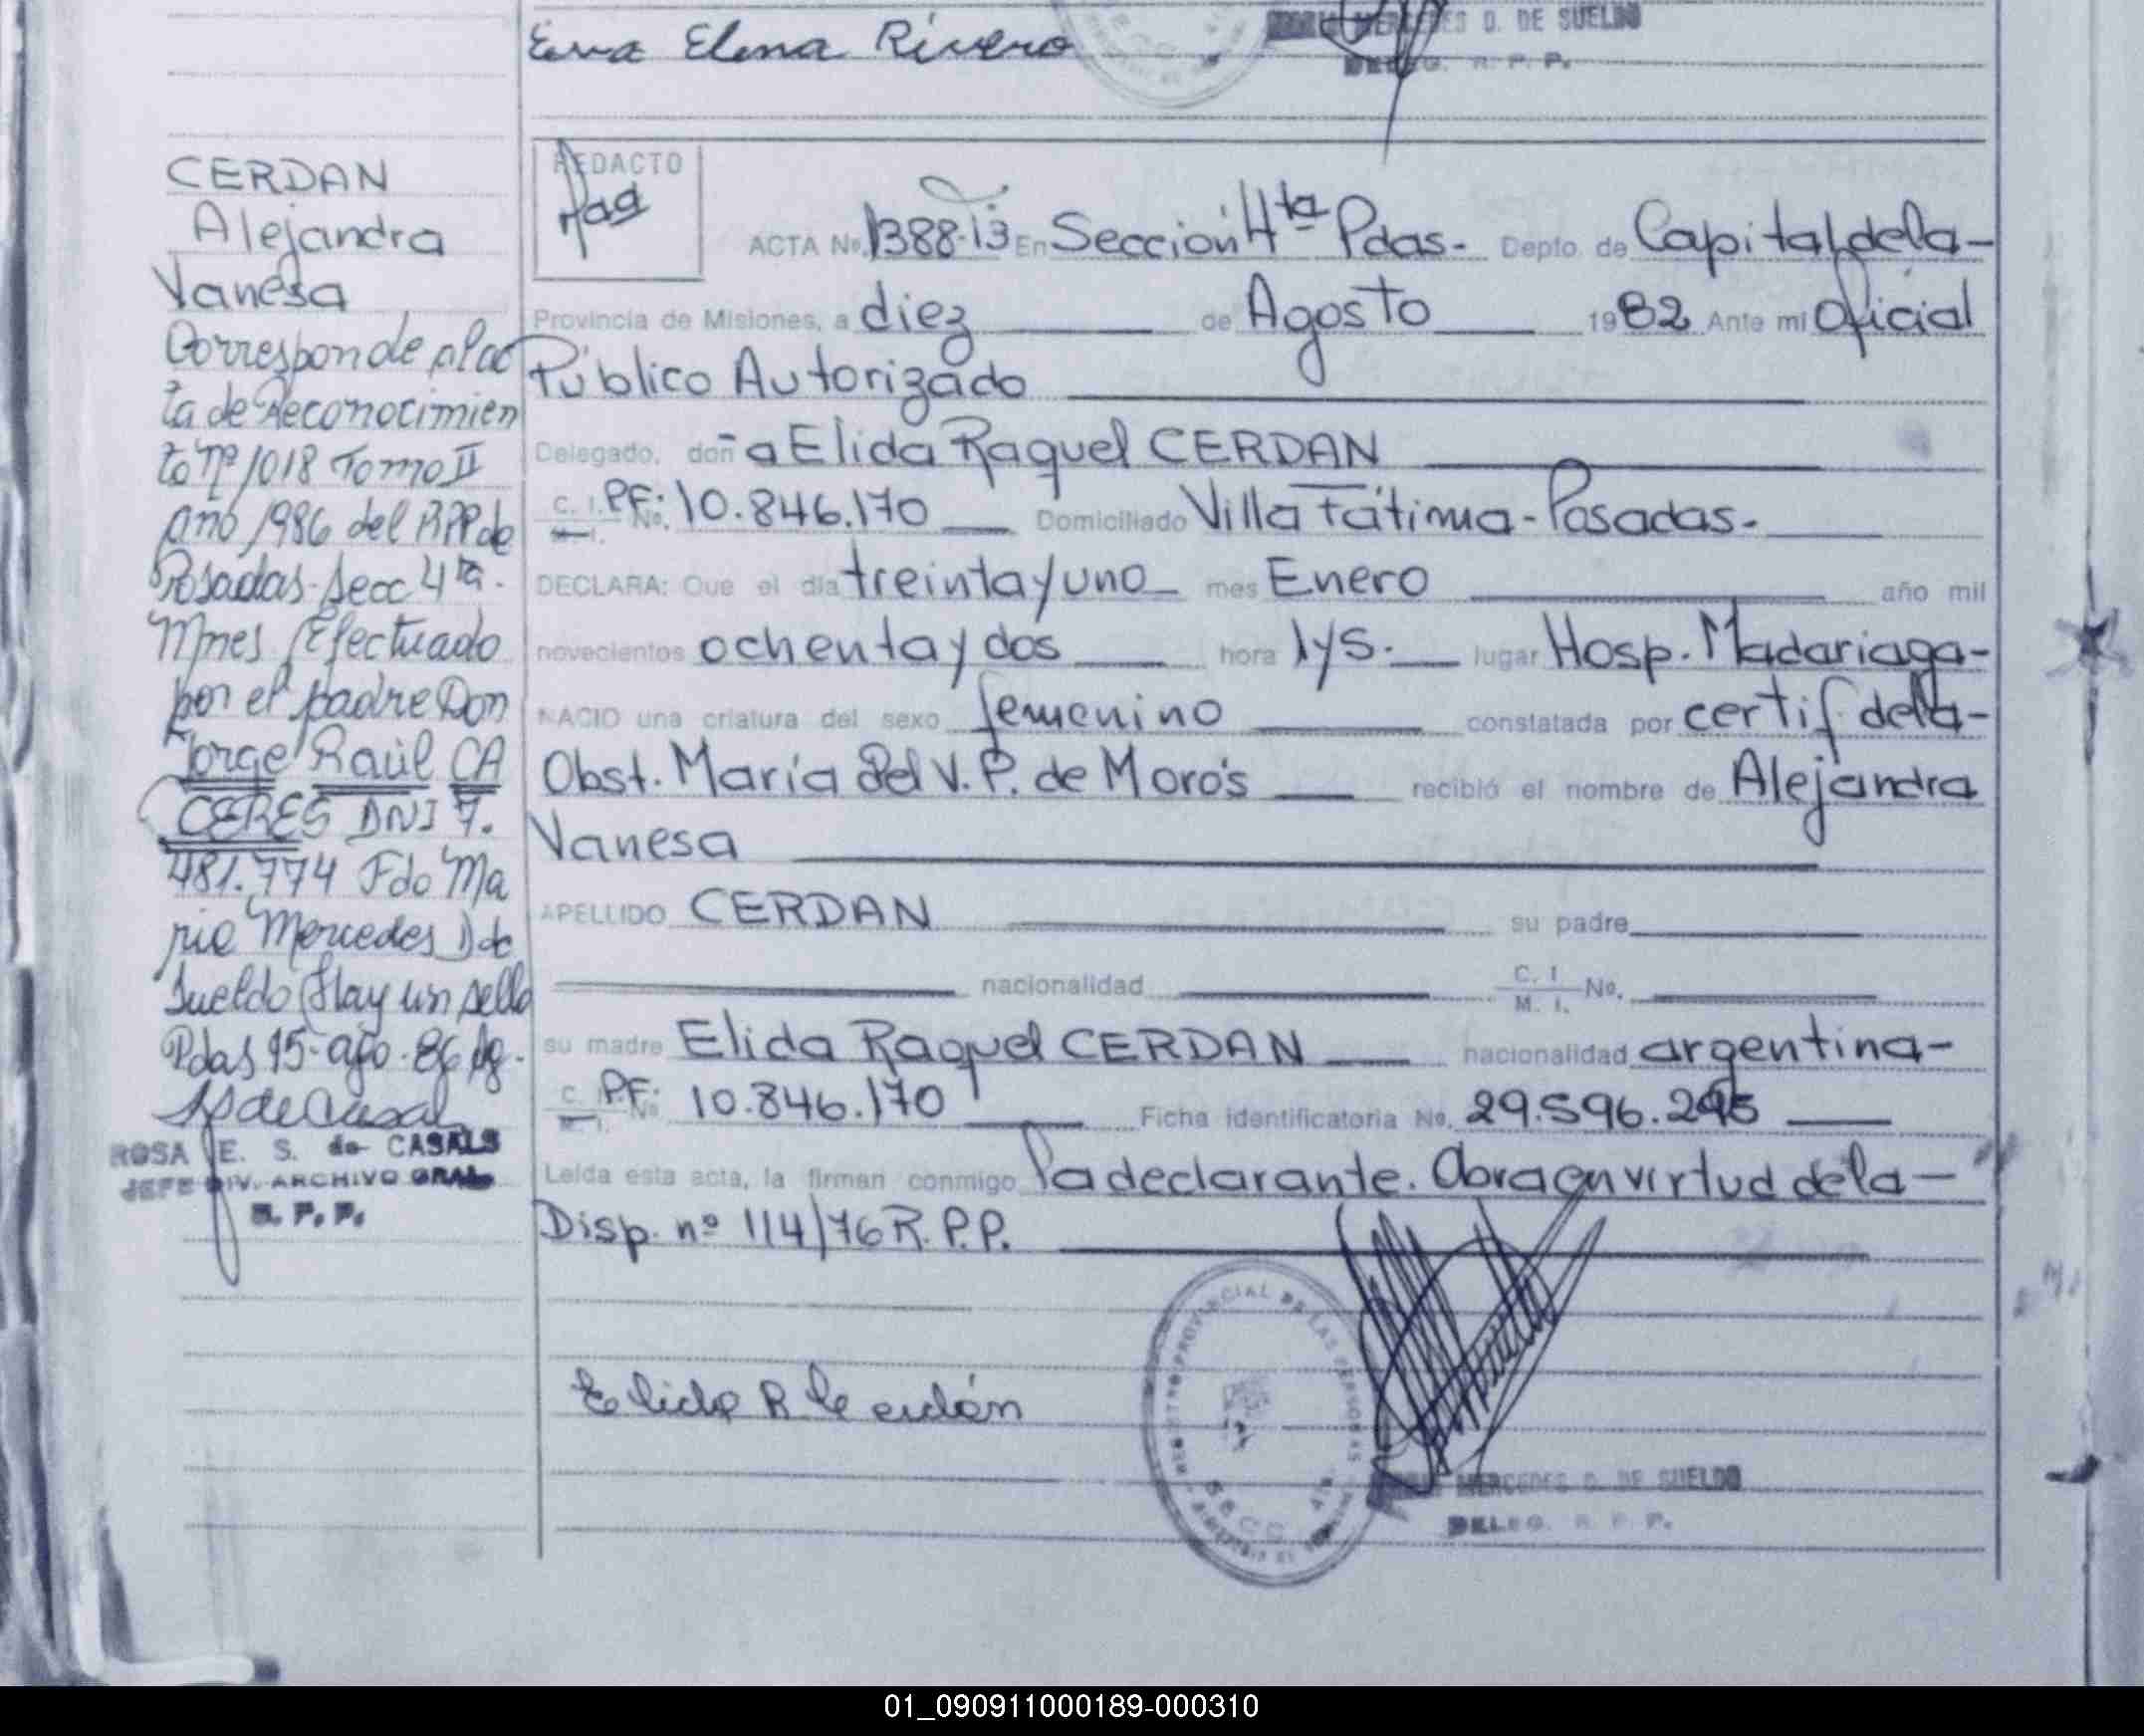 Eva Elena Rivero
MERCEDES D. DE SUELDO
DELEG. R. P. P.
CERDAN
Alejandra
Vanesa
Corresponde al ac
ta de Reconocimien
to nº 1018 Tomo II
año 1986 del RPP de
Posadas-Secc 4ta.
Mnes Efectuado
por el padre Don
Jorge Raúl CA
CERES DNI 7.
481.774 Fdo Ma
ria Mercedes D de
Sueldo Hay un sello
Pdas 15-ago-86
ROSA E. S. de CASALS
JEFE DIV. ARCHIVO GRAL.
R. P. P.
REDACTO
ACTA No. 1388-T3 En Sección 4ta Pdas- Depto. de Capital, de la-
Provincia de Misiones, a diez de Agosto 1982 Ante mi Oficial
Público Autorizado
Delegado, doña Elida Raquel CERDAN
C. I. PF: No. 10.846.170 Domiciliado Villa Fátima-Posadas-
DECLARA: Que el día treinta y uno mes Enero año mil
novecientos ochenta y dos hora 1 y 5. lugar Hosp. Madariaga-
NACIO una criatura del sexo femenino constatada por certif de la-
Obst. María del V. P. de Moro's recibió el nombre de Alejandra
Vanesa
APELLIDO CERDAN su padre
nacionalidad C. I. M. I. No.
su madre Elida Raquel CERDAN nacionalidad argentina-
C. I. PF: No. M. I. 10.846.170 Ficha identificatoria No. 29.596.295
Leida esta acta, la firman conmigo la declarante. Obra en virtud de la-
Disp. nº 114/76 R.P.P.
Elida R Cerdán
REGISTRO PROVINCIAL DE LAS PERSONAS
SECC. 4ta
MERCEDES D. DE SUELDO
DELEG. R. P. P.
01_090911000189-000310